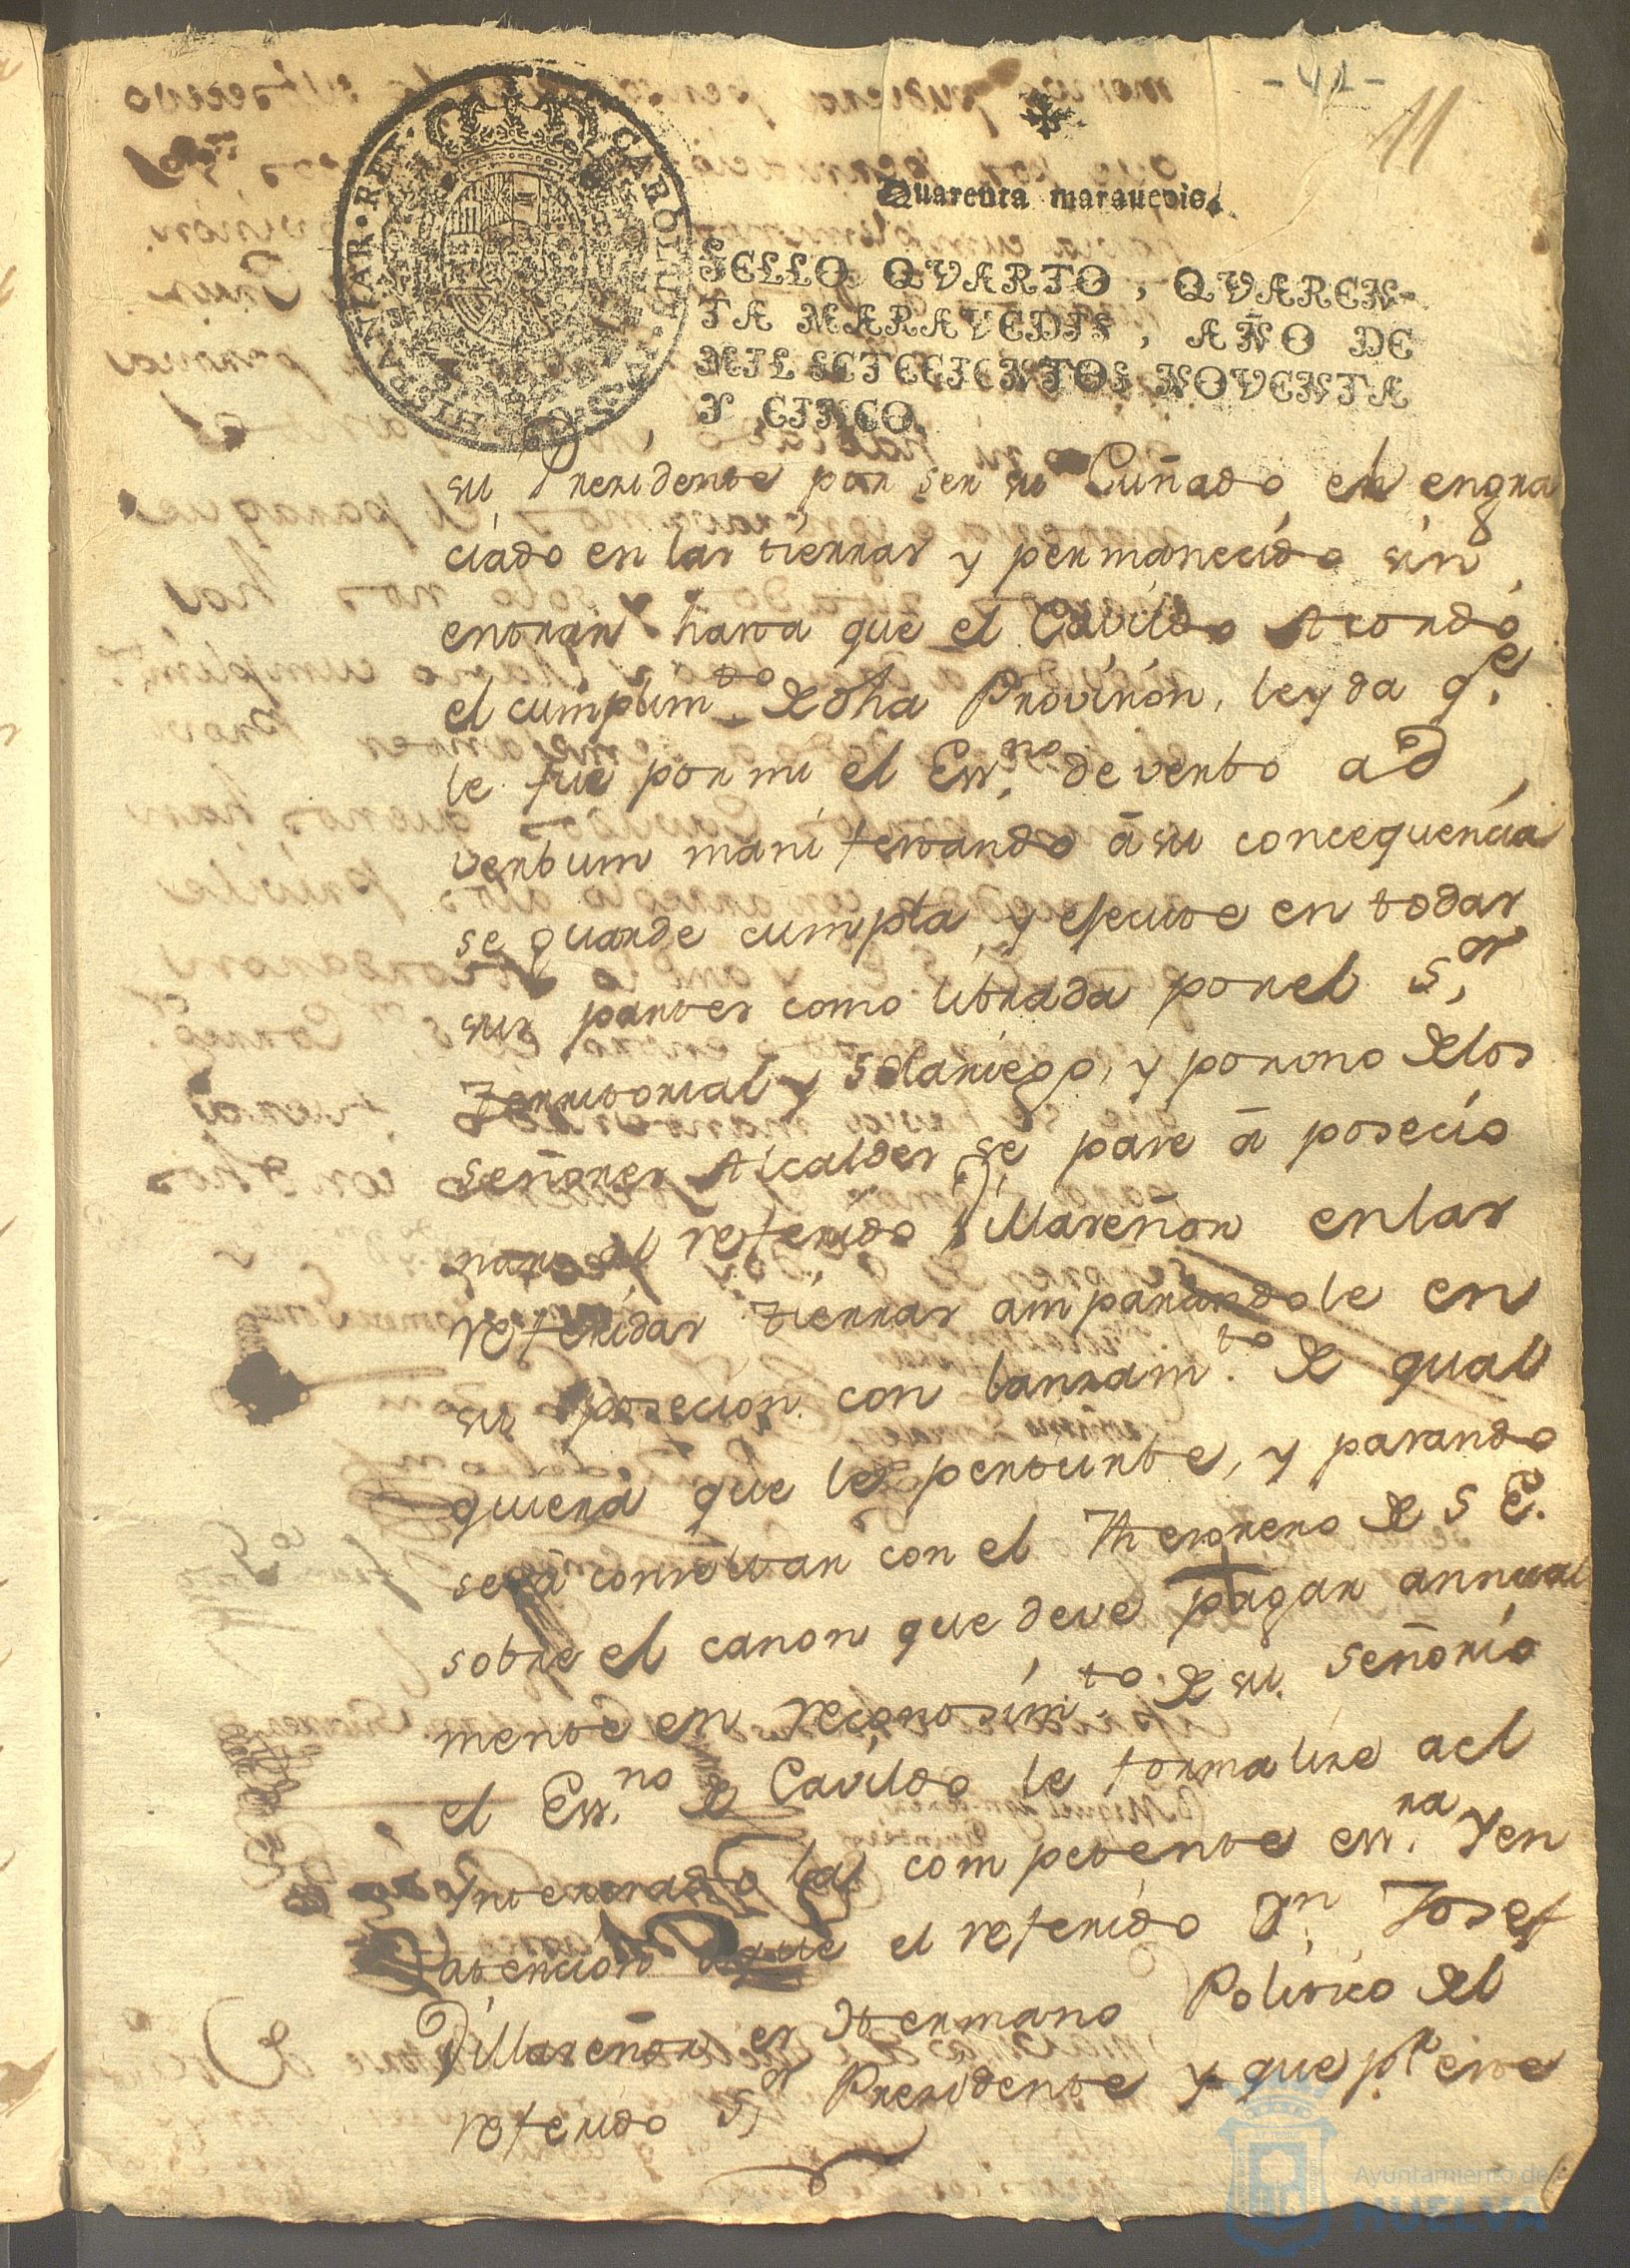 - 41 -
11
Quarenta marauedis.
SELLO QVARTO, QVAREN-
TA MARAVEDIS, AÑO DE
MIL SETECIENTOS NOVENTA
Y CINCO.
CAROLUS
HISPANIAR. REX
su Presidente por ser su Cuñado el engra
ciado en las tierras y permanecido sin
entrar hasta que el Cavildo Acordó
el cumplim.to de dha Provision, leyda q.e
le fue por mi el Ess.no de verbo ad
verbum manifestando á su concequencia
se guarde cumpla, y execute en todas
sus partes como librada por el S.or
Territorial y Solariego, y por uno de los
señores Alcaldes se pase á posecio
nar al referido Villaseñor en las
referidas tierras amparandole en
su posecion con lanzam.to de qual
quiera que le perturbe, y pasando
se á constituar con el Thesorero de S E.
sobre el canon que deve pagar annual
mente en reconosim.to de su señorio
el Ess.no de Cavildo le formalize ael
Ynteresado la competente ess.ra Yen
atencion a que el referido D.n Josef
Villaseñor es Hermano Politico del
referido S.or Presidente y que p.r este
Ayuntamiento de
HUELVA